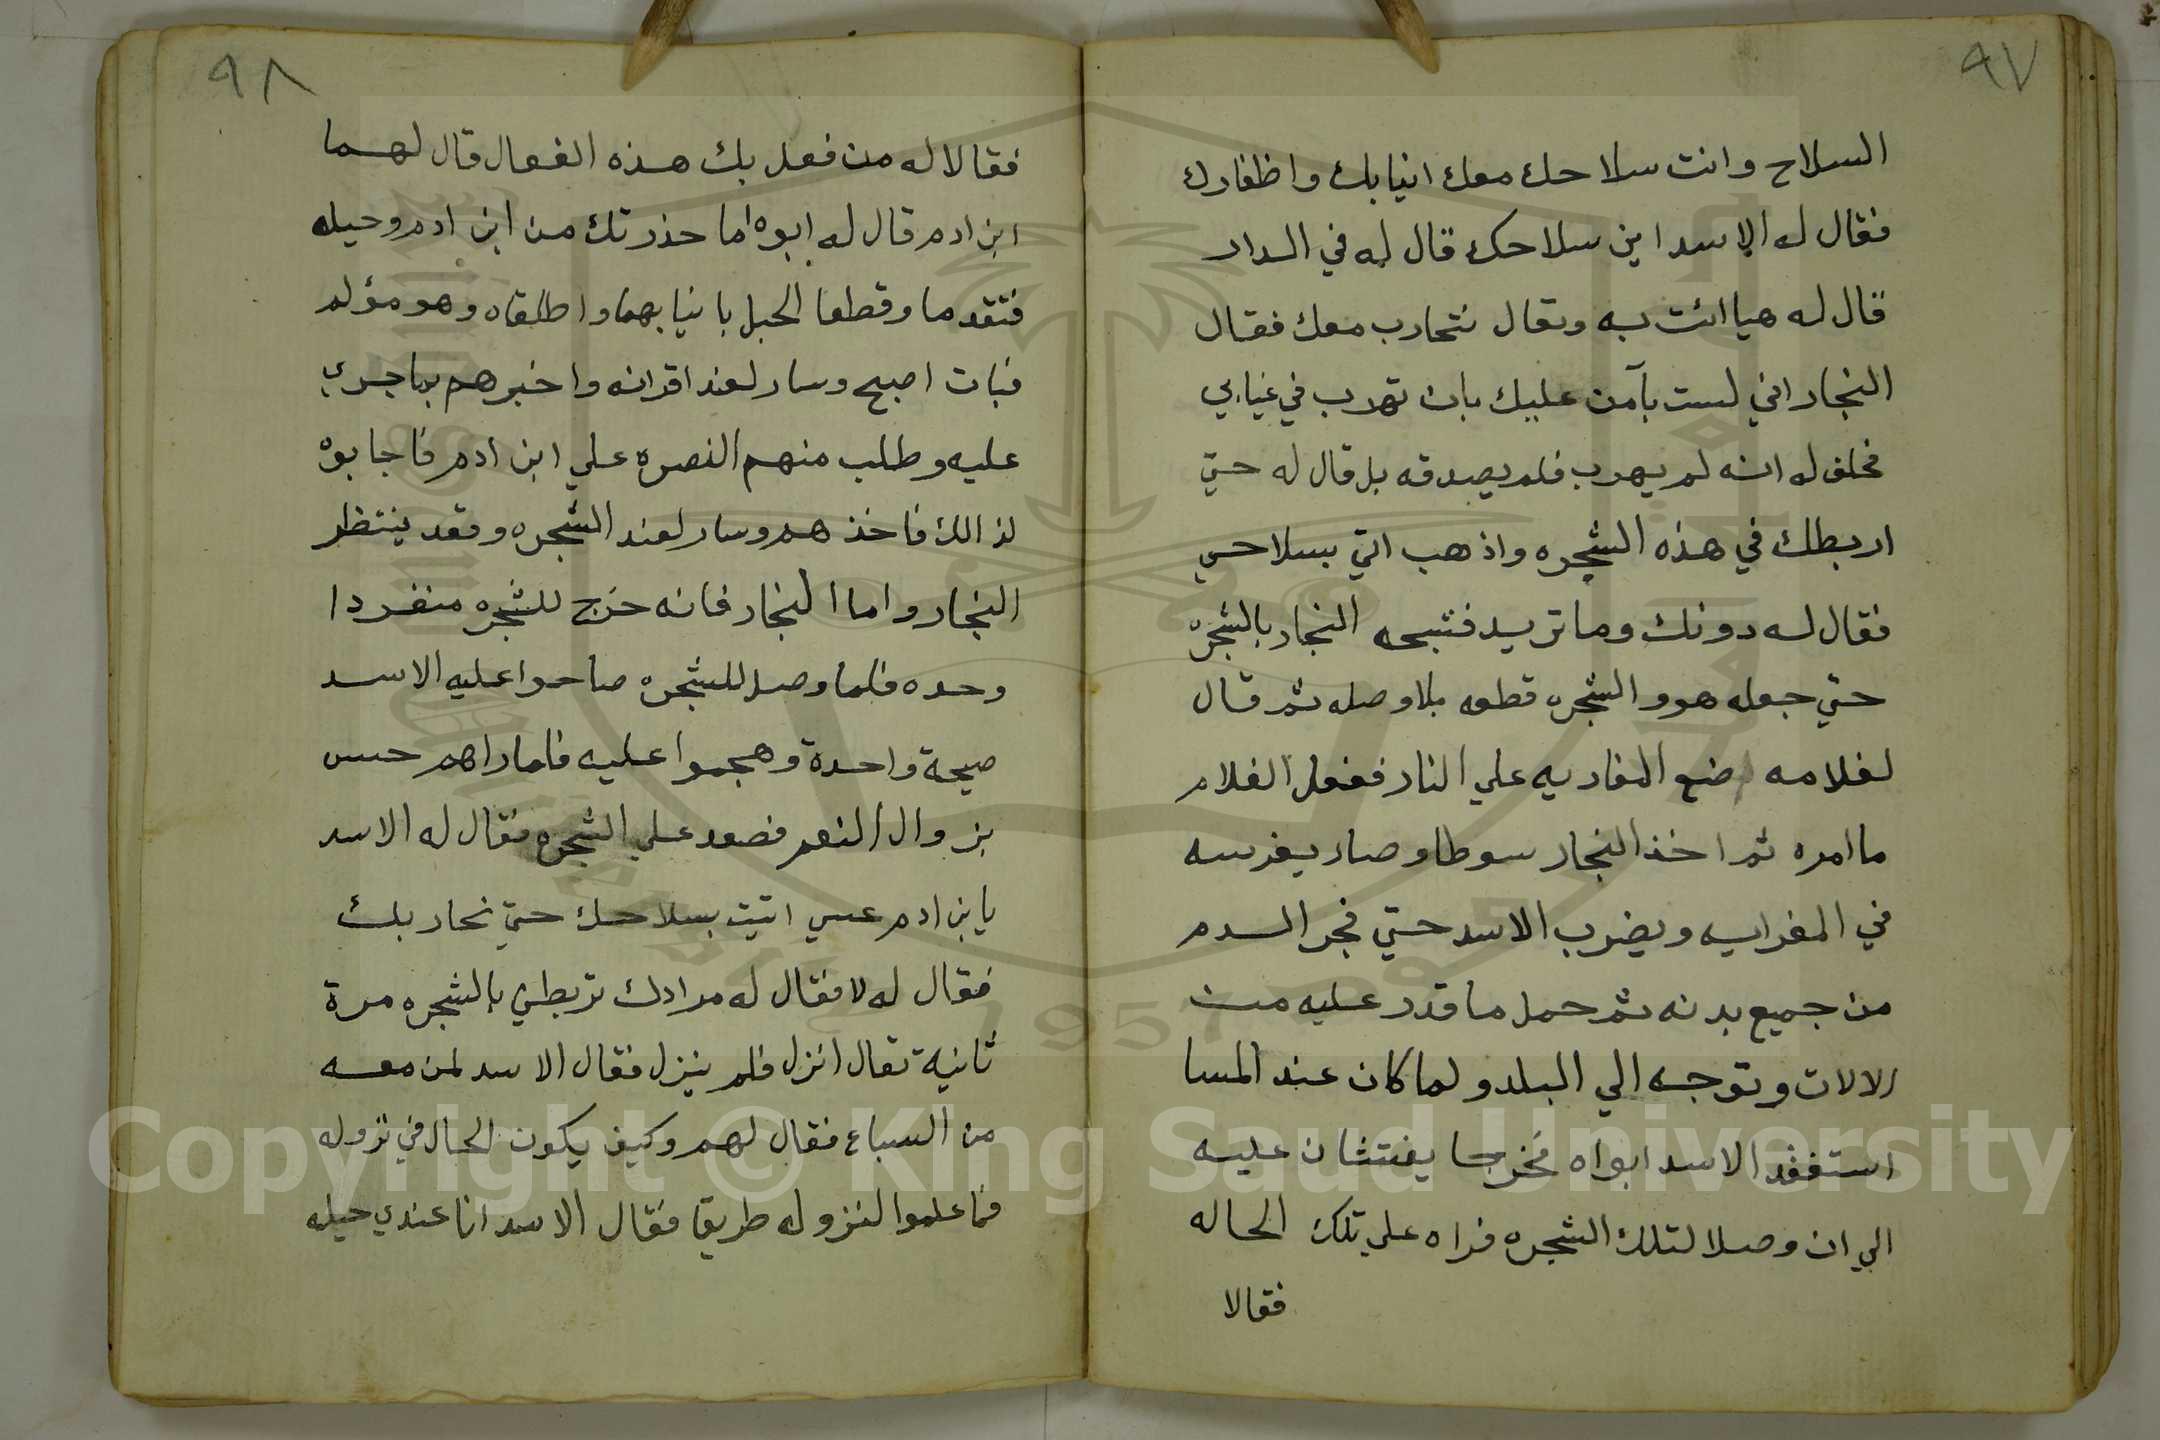 ٩٧
السلاح وانت سلاحك معك انيابك واظفارك
فقال له الاسد اين سلاحك قال له في الدار
قال له هيا ائت به وتعال نتحارب معك فقال
النجار اني لست بآمن عليك بان تهرب في غيابي
فحلف له انه لم يهرب فلم يصدقه بل قال له حتي
اربطك في هذه الشجره واذهب اتي بسلاحي
فقال له دونك وما تريد فتبحه النجار بالشجره
حتي جعله هو والشجره قطعه بلا وصله ثم قال
لغلامه ضع المغاريه علي النار ففعل الغلام
ما امره ثم اخذ النجار سوطا وصار يغرسه
في المغرايه ويضرب الاسد حتي فجر الدم
من جميع بدنه ثم حمل ما قدر عليه من
الالات وتوجه الي البلد ولما كان عند المسا
استفقد الاسد ابواه فخرجا يفتشان عليه
الي ان وصلا لتلك الشجره فراه علي تلك الحاله
فقالا
٩٨
فقالا له من فعل بك هذه الفعال قال لهما
ابن ادم قال له ابوه اما حذرتك من ابن ادم وحيله
فتقدما وقطعا الحبل بانيابهما واطلقاه وهو مؤلم
فبات اصبح وسار لعند اقرانه واخبرهم بما جري
عليه وطلب منهم النصره علي ابن ادم فاجابوه
لذالك فاخذهم وسار لعند الشجره وقعد ينتظر
النجار واما النجار فانه خرج للشجره منفردا
وحده فلما وصل للشجره صاحوا عليه الاسد
صيحة واحدة وهجموا عليه فلما راهم حس
بزوال النعم فصعد علي الشجره فقال له الاسد
يابن ادم عسي اتيت بسلاحك حتي نحاربك
فقال له لا فقال له مرادك تربطني بالشجره مرة
ثانية تعال انزل فلم ينزل فقال الاسد لمن معه
من السباع فقال لهم وكيف يكون الحال في نزوله
فما علموا لنزوله طريقا فقال الاسد انا عندي حيله
Copyright © King Saud University
1957